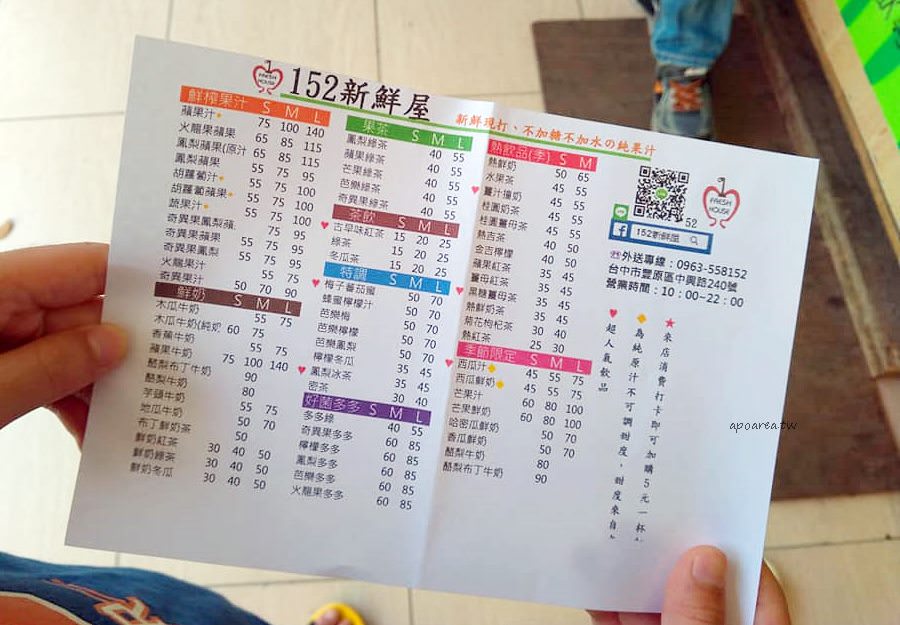 FRESH HOUSE
152新鮮屋
新鮮現打、不加糖不加水の純果汁
鮮榨果汁 S M L
蘋果汁 75 100 140
火龍果蘋果 65 85 115
鳳梨蘋果(原汁 65 85 115
鳳梨蘋果 55 75 95
胡蘿蔔汁 55 75 100
胡蘿蔔蘋果 55 75 100
蔬果汁 55 75 100
奇異果鳳梨蘋 75 95
奇異果蘋果 75 95
奇異果鳳梨 75 95
火龍果汁 55 75
奇異果汁 50 70 90
鮮奶 S M L
木瓜牛奶 55 75
木瓜牛奶(純奶 60 75
香蕉牛奶 55 75
蘋果牛奶 75 100 140
酪梨布丁牛奶 90
酪梨牛奶 80
芋頭牛奶
地瓜牛奶 55 75
布丁鮮奶茶 50 70
鮮奶紅茶 30 40 50
鮮奶綠茶 30 40 50
鮮奶冬瓜 30 40 50
果茶 S M L
鳳梨綠茶 40 55
蘋果綠茶 40 55
芒果綠茶 40 55
芭樂綠茶 40 55
奇異果綠茶 40 55
茶飲 S M L
古早味紅茶 15 20 25
綠茶 15 20 25
冬瓜茶 15 20 25
特調 S M L
梅子番茄蜜 50 70
蜂蜜檸檬汁 50 70
芭樂梅 50 70
芭樂檸檬 50 70
芭樂鳳梨 50 70
檸檬冬瓜 35 45
鳳梨冰茶 35 45
密茶 30 40
好菌多多 S M L
多多綠 40 55
奇異果多多 60 85
檸檬多多 60 85
鳳梨多多 60 85
芭樂多多 60 85
火龍果多多 60 85
熱飲品(季) S M
熱鮮奶 50 65
水果茶 45 55
薑汁撞奶 45 55
桂圓奶茶 45 55
桂圓薑母茶 45 55
熱吉茶 40 50
金吉檸檬 40 50
蘋果紅茶 35 45
薑母紅茶 35 45
黑糖薑母茶 35 45
熱鮮奶茶 35 45
菊花枸杞茶 30 40
熱紅茶 25 30
季節限定 S M L
西瓜汁 45 55 75
西瓜鮮奶 45 55 75
芒果汁 60 80 100
芒果鮮奶 60 80 100
哈密瓜鮮奶 50 70
香瓜鮮奶 50 70
酪梨牛奶 80
酪梨布丁牛奶 90
52
FRESH HOUSE
152新鮮屋
外送專線：0963-558152
台中市豐原區中興路240號
營業時間：10：00~22：00
來店消費打卡即可加購5元一杯
為純原汁不可調甜度，甜度來自
超人氣飲品
apoarea.tw